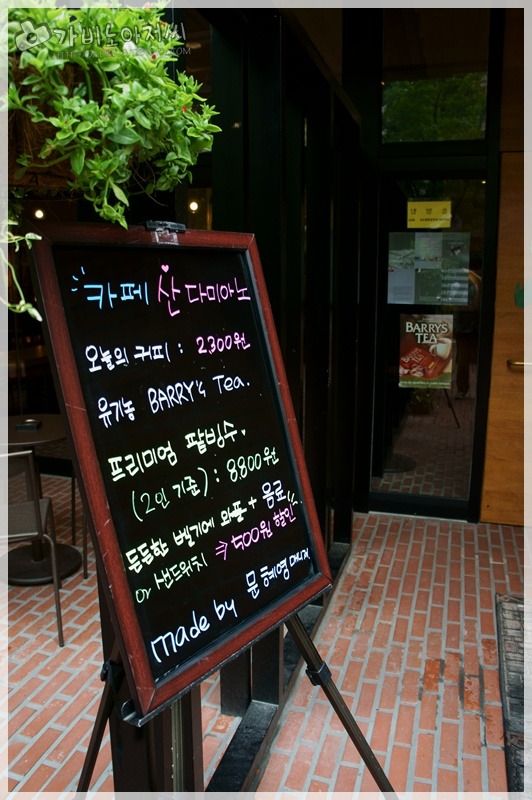 가비노아저씨
카페 산 다미아노
오늘의 커피 : 2,300원
유기농 BARRY's Tea.
프리미엄 팥빙수.
(2인 기준) : 8800원
든든한 벨기에 와플 + 음료
or 샌드위치 ⇒ 500원 할인
made by 문혜영 매니저
냉방중
BARRY'S
TEA